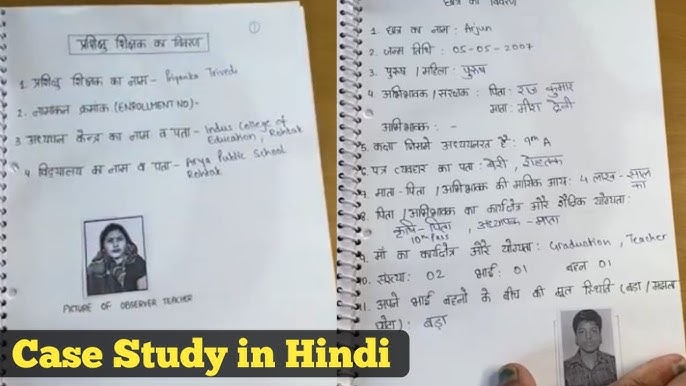 प्रशिक्षु शिक्षक का विवरण
1
1. प्रशिक्षु शिक्षक का नाम - Priyanka Trivedi
2. नामांकन क्रमांक (ENROLLMENT NO) -
3 अध्ययन केन्द्र का नाम व पता - Indus College of
Education, Rohtak
4. विद्यालय का नाम व पता - Arya Public School
Rohtak
PICTURE OF OBSERVER TEACHER
छात्र का विवरण
1. छात्र का नाम : Arjun
2. जन्म तिथि : 05-05-2007
3. पुरुष / महिला : पुरुष
4 अभिभावक / संरक्षक : पिता : राज कुमार
माता : मीरा देवी
अभिभावक : -
5. कक्षा जिसमे अध्ययनरत है : 9th A
6. पत्र व्यवहार का पता : बेरी, रोहतक
7. माता - पिता / अभिभावक की मासिक आय : 4 लाख - साल
का
8. पिता / अभिभावक का कार्यक्षेत्र और शैक्षिक योग्यता :
कृषि - पिता, अध्यापक - माता
10th Pass
9. माँ का कार्यक्षेत्र और योग्यता : Graduation, Teacher
10. संख्या : 02 भाई : 01 बहन 01
11. अपने भाई बहनो के बीच की स्थिति (बड़ा /
बड़ा
Case Study in Hindi